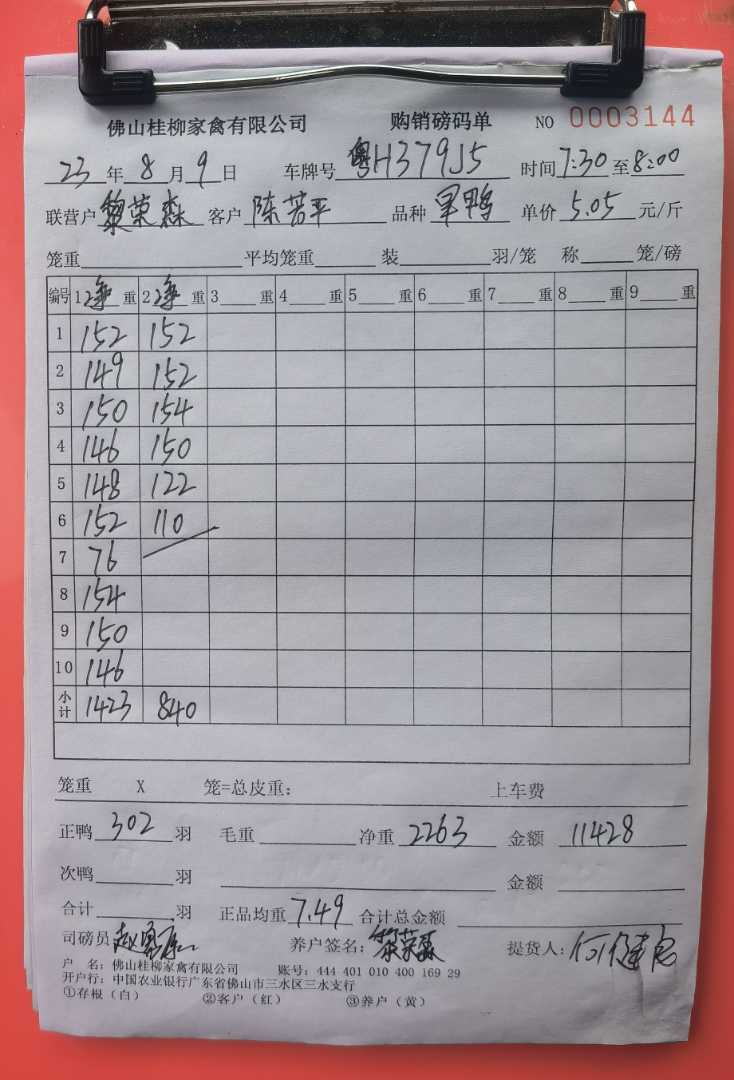 佛山桂柳家禽有限公司 购销磅码单 NO 0003144
23年8月9日 车牌号 粤H379J5 时间7:30至8:00
联营户 黎荣森 客户 陈苦平 品种 旱鸭 单价 5.05 元/斤
笼重 平均笼重 装 羽/笼 称 笼/磅
编号 1净重 2净重 3 重 4 重 5 重 6 重 7 重 8 重 9 重
1 152 152
2 149 152
3 150 154
4 146 150
5 148 122
6 152 110
7 76
8 154
9 150
10 146
小计 1423 840
笼重 X 笼=总皮重: 上车费
正鸭 302 羽 毛重 净重 2263 金额 11428
次鸭 羽 金额
合计 羽 正品均重 7.49 合计总金额
司磅员 养户签名: 黎荣森 提货人:
户 名: 佛山桂柳家禽有限公司 账号: 444 401 010 400 169 29
开户行: 中国农业银行广东省佛山市三水区三水支行
①存根（白） ②客户（红） ③养户（黄）